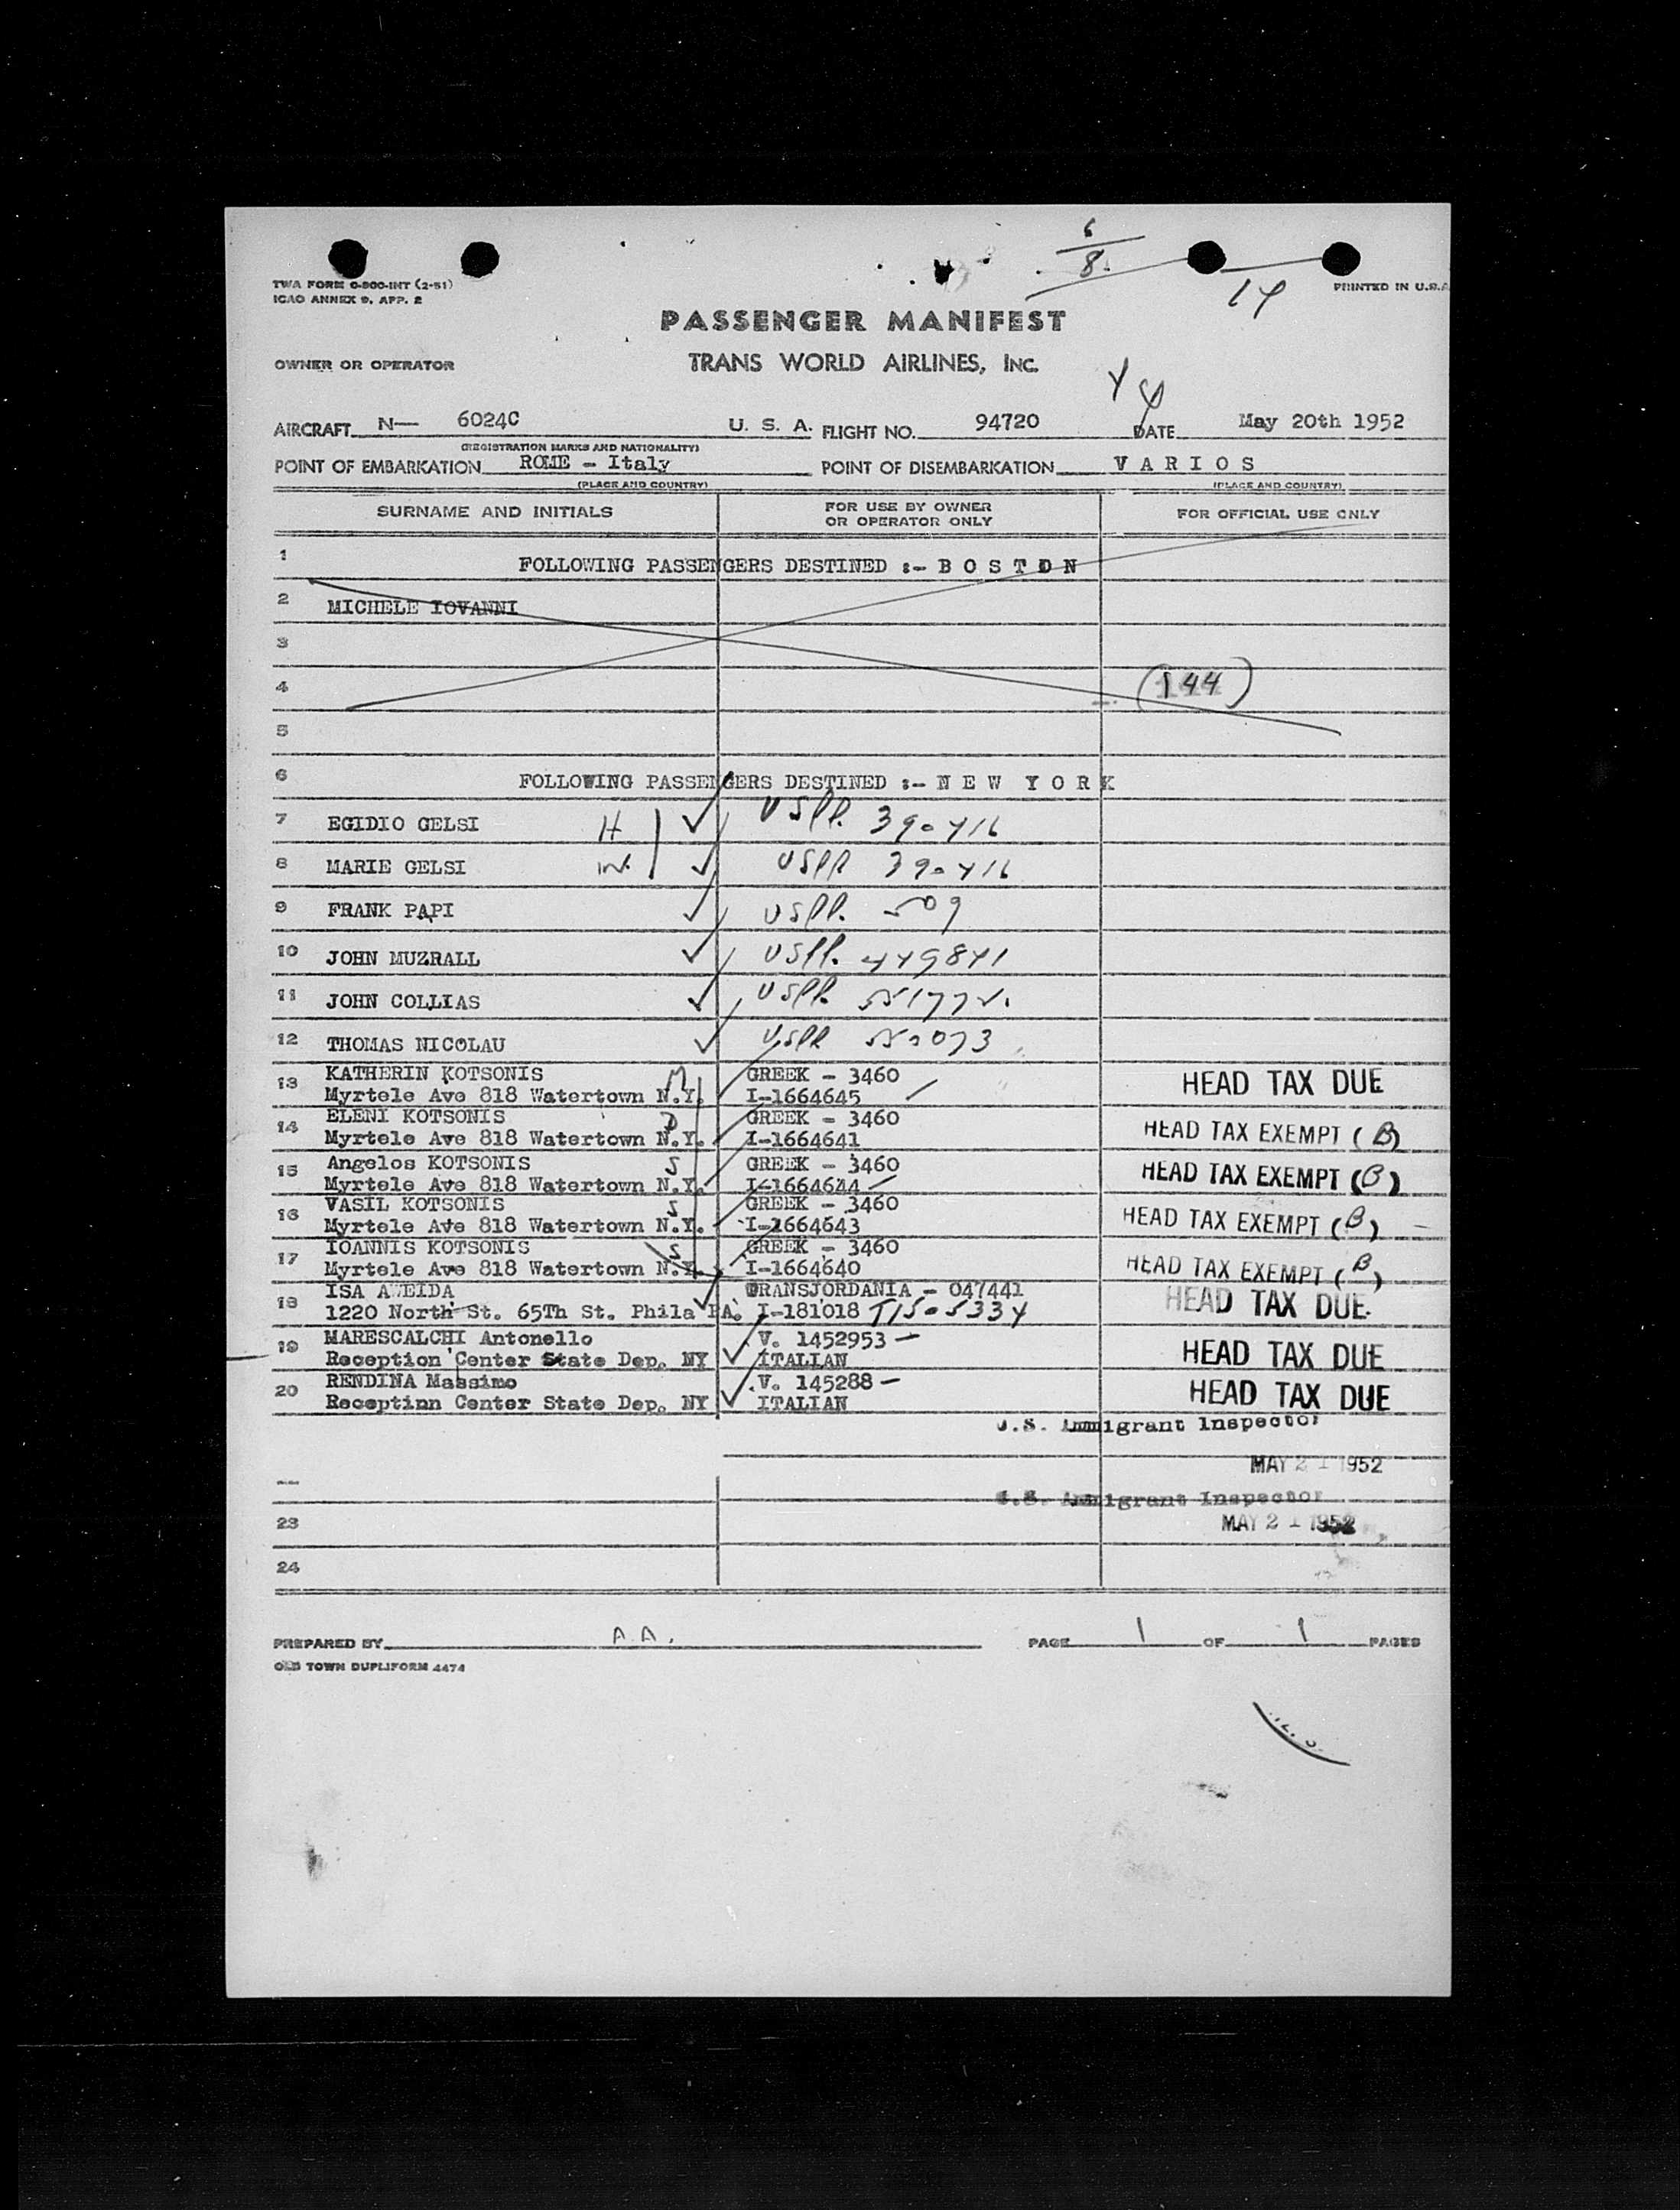 6
8
14
TWA FORM O-800-INT (2-51)
ICAO ANNEX 9, APP. 2
PRINTED IN U.S.A
PASSENGER MANIFEST
OWNER OR OPERATOR TRANS WORLD AIRLINES, INC.
AIRCRAFT N— 6024C U. S. A. FLIGHT NO. 94720 DATE May 20th 1952
(REGISTRATION MARKS AND NATIONALITY)
POINT OF EMBARKATION ROME - Italy POINT OF DISEMBARKATION V A R I O S
(PLACE AND COUNTRY) (PLACE AND COUNTRY)
SURNAME AND INITIALS FOR USE BY OWNER OR OPERATOR ONLY FOR OFFICIAL USE ONLY
1 FOLLOWING PASSENGERS DESTINED :- B O S T O N
2 MICHELE IOVANNI
3
4 (144)
5
6 FOLLOWING PASSENGERS DESTINED :- N E W Y O R K
7 EGIDIO GELSI H USPP. 390416
8 MARIE GELSI W. USPP 390416
9 FRANK PAPI USPP. 509
10 JOHN MUZRALL USPP. 449841
11 JOHN COLLIAS USPP.
12 THOMAS NICOLAU USPP
13 KATHERIN KOTSONIS M GREEK - 3460
Myrtele Ave 818 Watertown N.Y. I-1664645 HEAD TAX DUE
14 ELENI KOTSONIS D GREEK - 3460
Myrtele Ave 818 Watertown N.Y. I-1664641 HEAD TAX EXEMPT (B)
15 Angelos KOTSONIS S GREEK - 3460
Myrtele Ave 818 Watertown N.Y. I-1664644 HEAD TAX EXEMPT (B)
16 VASIL KOTSONIS S GREEK - 3460
Myrtele Ave 818 Watertown N.Y. I-1664643 HEAD TAX EXEMPT (B)
17 IOANNIS KOTSONIS S GREEK - 3460
Myrtele Ave 818 Watertown N.Y. I-1664640 HEAD TAX EXEMPT (B)
18 ISA AWEIDA TRANSJORDANIA - 047441
1220 North St. 65Th St. Phila PA. I-181018 HEAD TAX DUE
19 MARESCALCHI Antonello V. 1452953
Reception Center State Dep. NY ITALIAN HEAD TAX DUE
20 RENDINA Massimo V. 145288
Receptinn Center State Dep. NY ITALIAN HEAD TAX DUE
U.S. Immigrant Inspector
MAY 21 1952
U.S. Immigrant Inspector
23 MAY 21 1952
24
PREPARED BY A.A. PAGE 1 OF 1 PAGES
OLD TOWN DUPLIFORM 4474